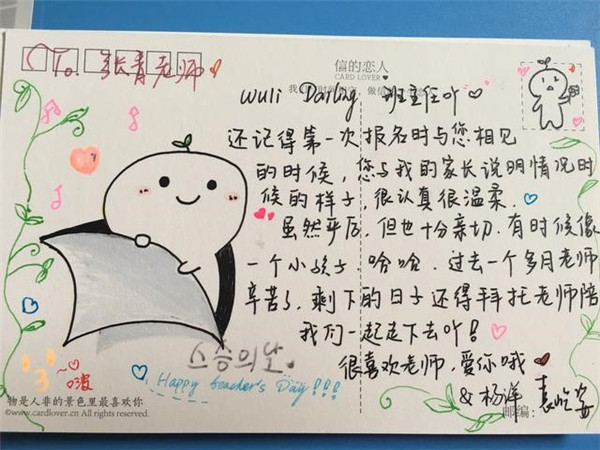 To 张青老师
信的恋人
CARD LOVER
wuli Darling 班主任吖
还记得第一次报名时与您相见
的时候，您与我的家长说明情况时
候的样子，很认真很温柔.
虽然严厉，但也十分亲切.有时候像
一个小孩子.哈哈.过去一个多月老师
辛苦了，剩下的日子还得拜托老师陪
我们一起走下去吖！
很喜欢老师，爱你哦
& 杨洋
스승의날
Happy teacher's Day!!!
物是人非的景色里最喜欢你
©www.cardlover.cn All rights reserved.
邮编：